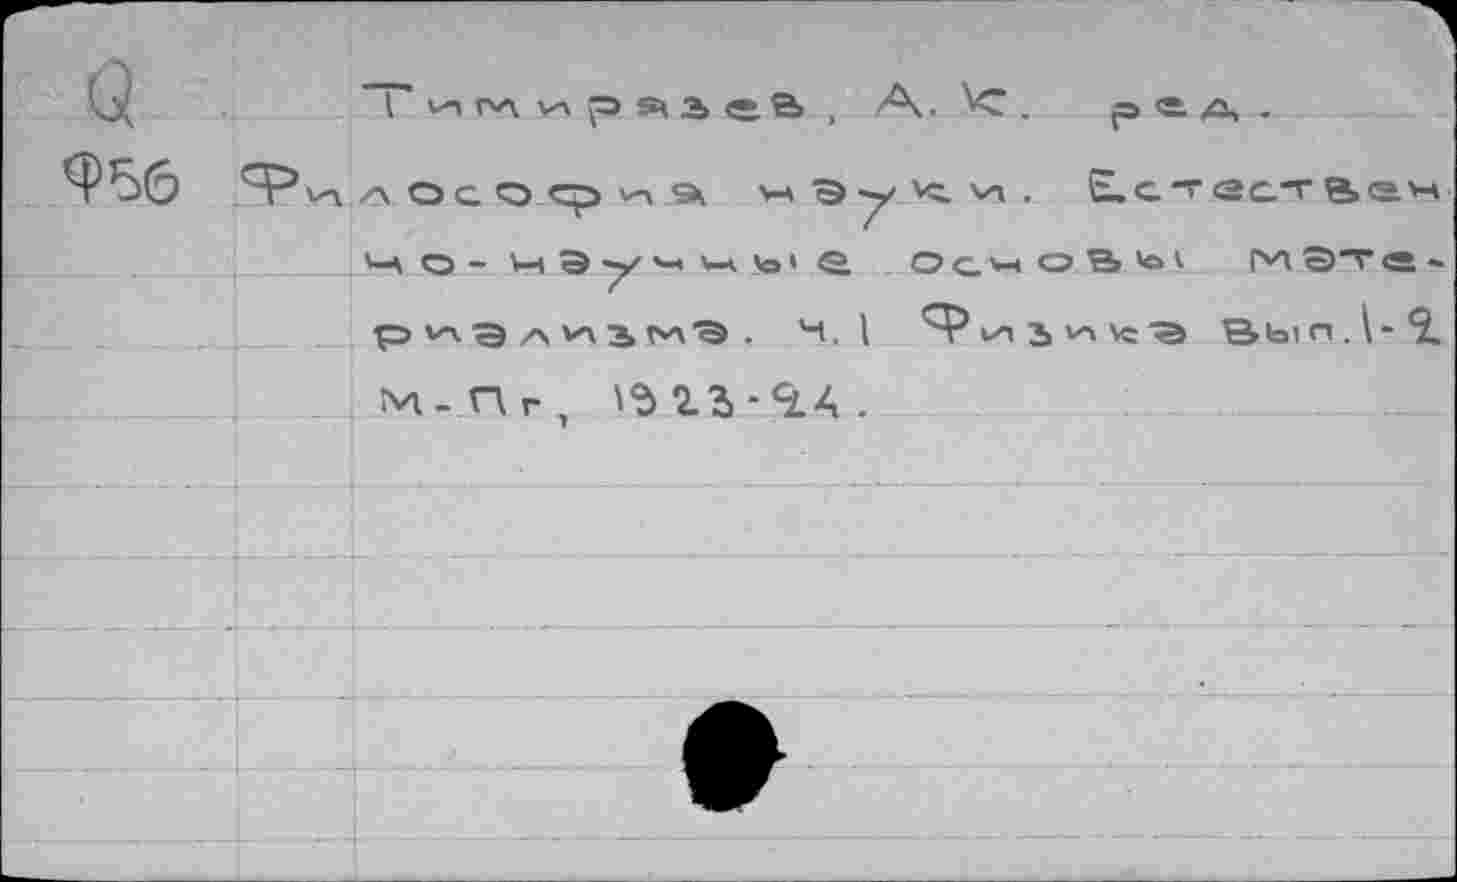 Q Тимирязев, А. К. ред.
Ф56 Философия науки. Естествен
но-научные основы мате-
риализма. Ч. 1 Физика Вып. 1-2
М-Пг, 1923-24.